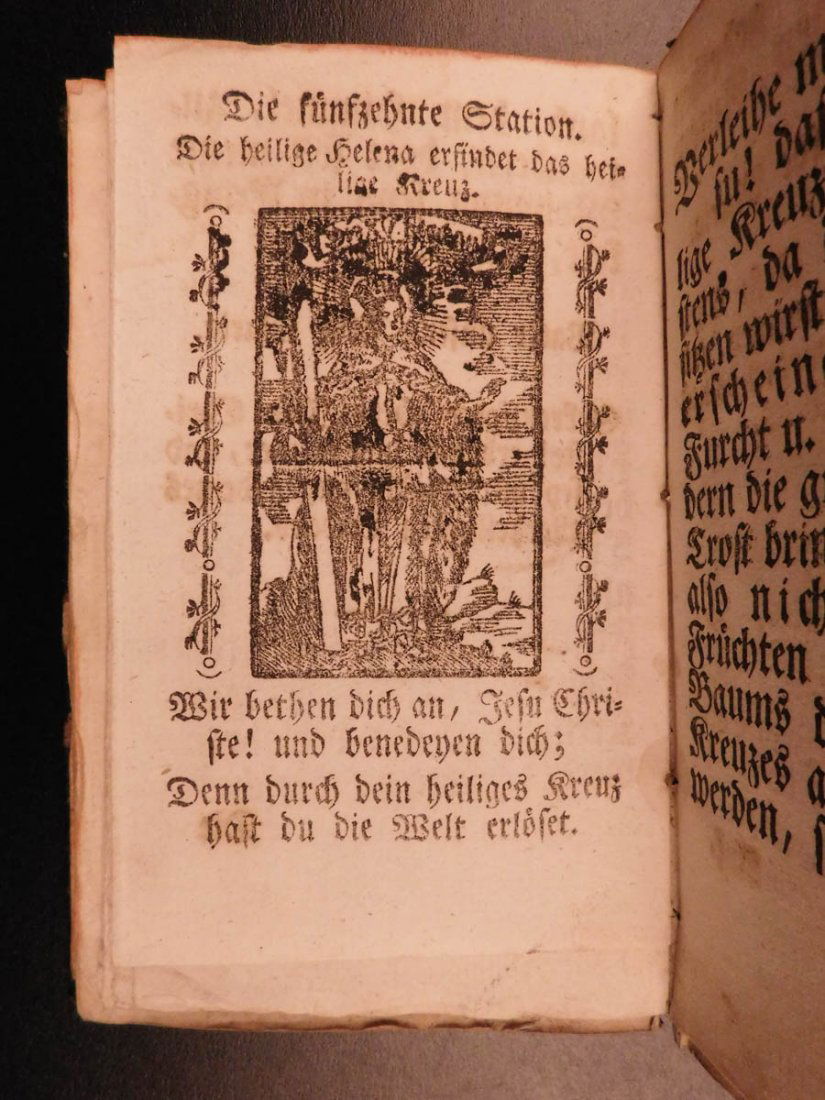 Die fünfzehnte Station.
Die heilige Helena erfindet das hei-
lige Kreuz.
Wir bethen dich an, Jesu Chri-
ste! und benedeyen dich;
Denn durch dein heiliges Kreuz
hast du die Welt erlöset.
Verleihe
su!
lige Kreuz
stens, da
sitzen wirst
Furcht u.
dern die
Trost
also
Früchten
Baums
Kreuzes
werden,